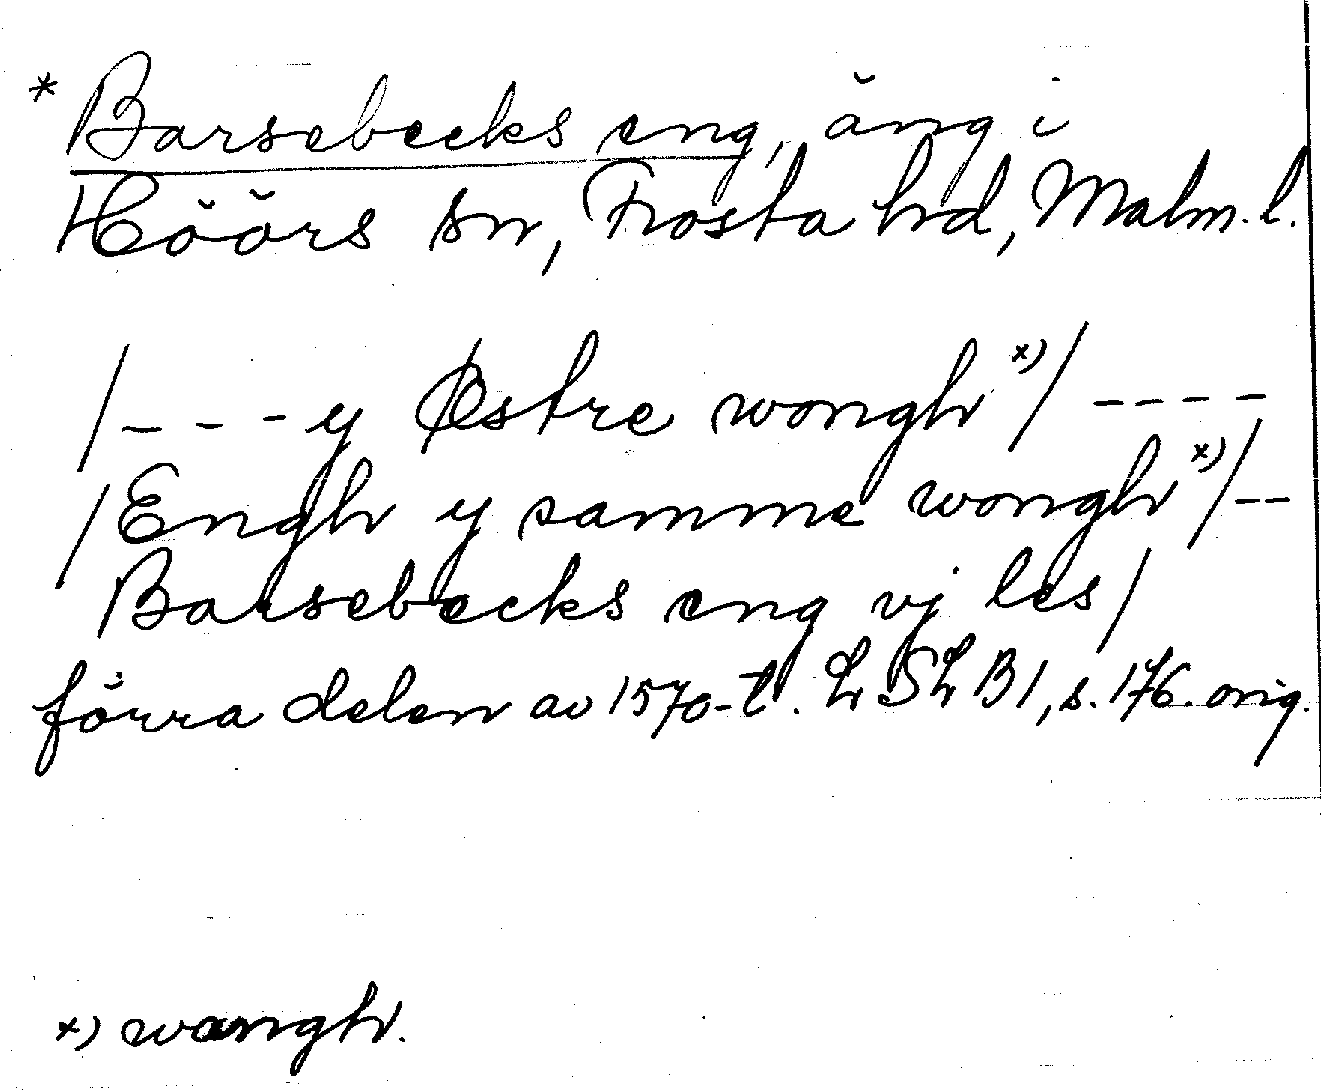 * Barsebecks eng, äng i
Höörs sn, Frosta hd, Malm. l.
/---y Østre wongh x)/ ----
/Engh y samme wongh x)/--
Barsebecks eng vj les/
förra delen av 1570-t. LSLB1, s. 176. orig.
x) wangh.